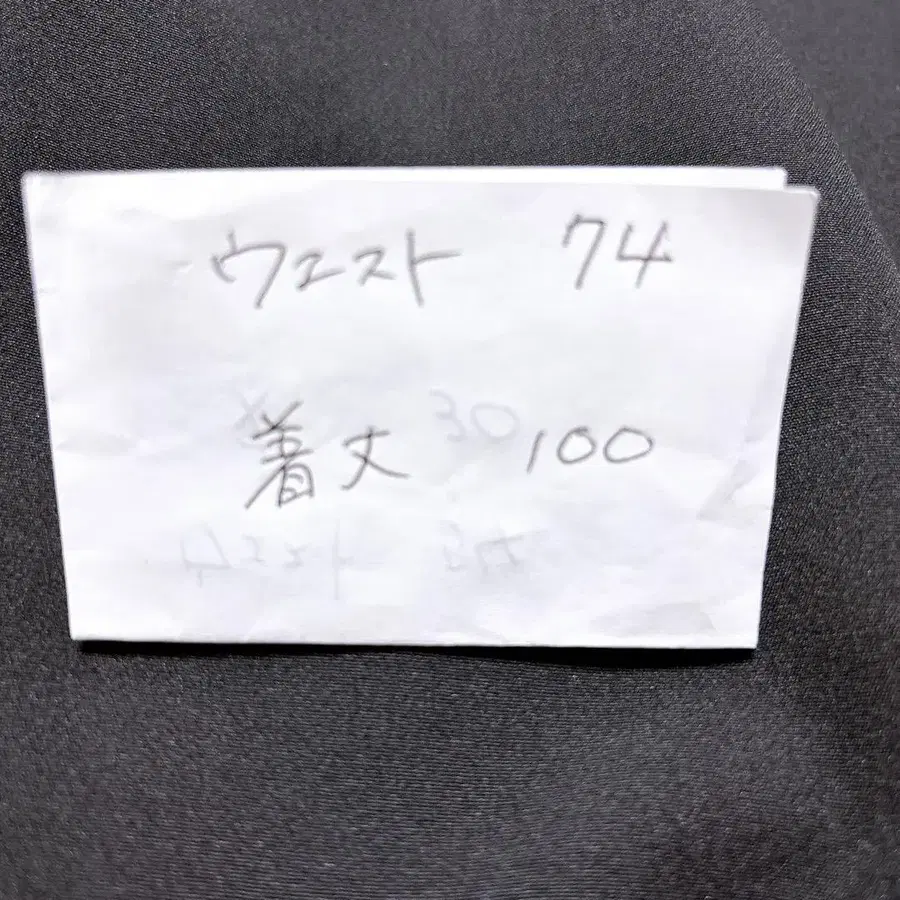 ウエスト 74
着丈 100